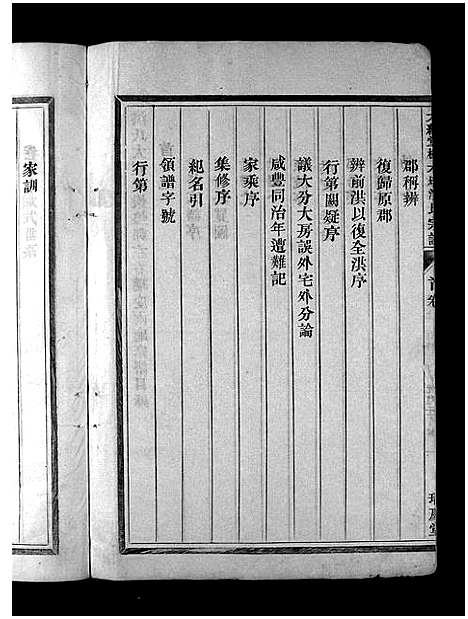 郡稱辨
復歸原郡
辨前洪以復全洪序
行第闕疑序
議大分大房誤外宅外分論
咸豐同治年遭難記
家乘序
集修序
紀名引
領譜字號
行第
家訓